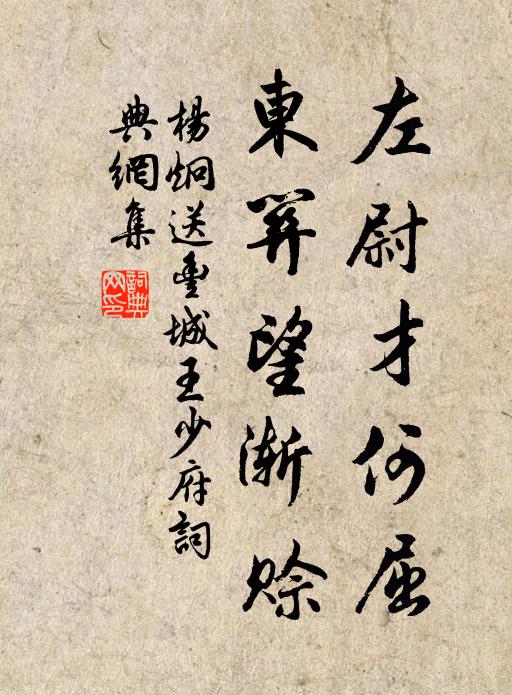 左尉才何屈
東關望漸賒
楊炯送豐城王少府詞
典網集
詞典
网印